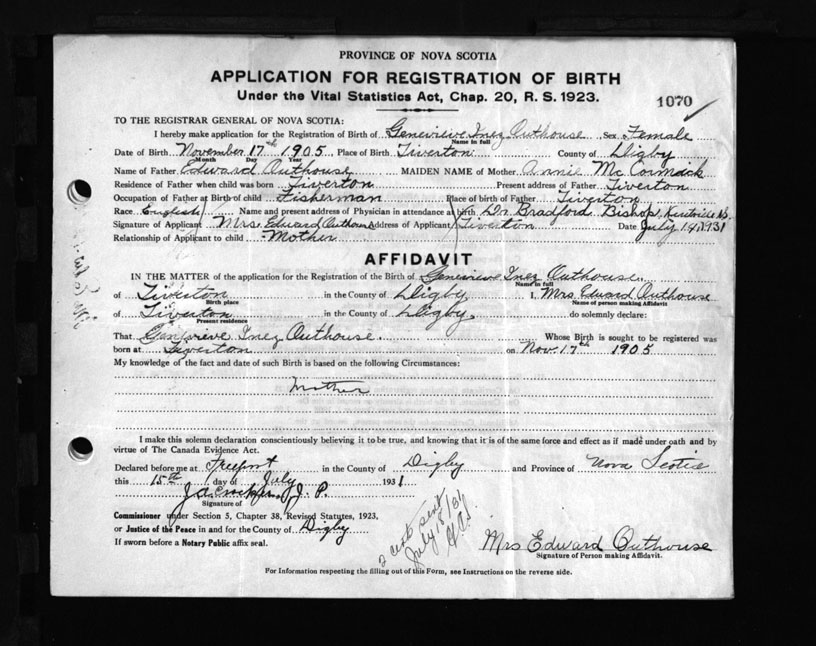 PROVINCE OF NOVA SCOTIA
APPLICATION FOR REGISTRATION OF BIRTH
Under the Vital Statistics Act, Chap. 20, R. S. 1923.
1070
TO THE REGISTRAR GENERAL OF NOVA SCOTIA:
I hereby make application for the Registration of Birth of Genevieve Inez Outhouse Sex Female
Name in full
Date of Birth November 17th 1905 Place of Birth Tiverton County of Digby
Month Day Year
Name of Father Edward Outhouse MAIDEN NAME of Mother Annie McCormack
Residence of Father when child was born Tiverton Present address of Father Tiverton
Occupation of Father at Birth of child Fisherman Place of birth of Father Tiverton
Race English Name and present address of Physician in attendance at birth Dr Bradford Bishop, Kentville N.S.
Signature of Applicant Mrs. Edward Outhouse Address of Applicant Tiverton Date July 14 1931
Relationship of Applicant to child Mother
AFFIDAVIT
IN THE MATTER of the application for the Registration of the Birth of Genevieve Inez Outhouse
Name in full
of Tiverton in the County of Digby I, Mrs Edward Outhouse
Birth place Name of person making Affidavit
of Tiverton in the County of Digby, do solemnly declare:
Present residence
That Genevieve Inez Outhouse. Whose Birth is sought to be registered was
born at Tiverton on Nov. 17th 1905
My knowledge of the fact and date of such Birth is based on the following Circumstances:
Mother
I make this solemn declaration conscientiously believing it to be true, and knowing that it is of the same force and effect as if made under oath and by
virtue of The Canada Evidence Act.
Declared before me at Freeport in the County of Digby and Province of Nova Scotia
this 15th day of July 1931
J. P.
Signature of
Commissioner under Section 5, Chapter 38, Revised Statutes, 1923,
or Justice of the Peace in and for the County of Digby
If sworn before a Notary Public affix seal.
2 cert sent
July 18/31
Mrs Edward Outhouse
Signature of Person making Affidavit.
For Information respecting the filling out of this Form, see Instructions on the reverse side.